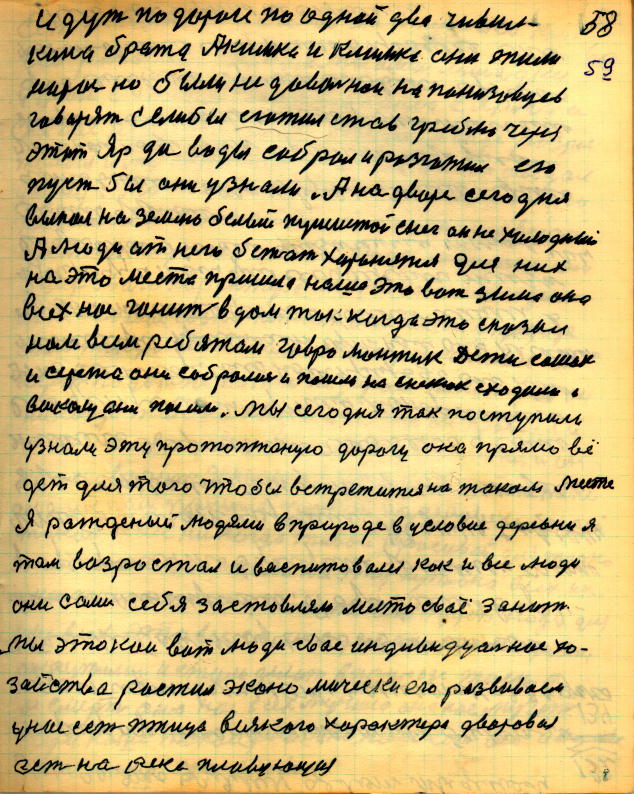 идут по дороге по одной два чивил- 58
кима брата Акимка и Климка они жили 59
но были не довольной на понизовцев
говорят если бы стожил став греблю через
этот Яр да воды собрал и разложил его
пуст бы они узнали. А на дворе сегодня
выпал на землю белый пушистой снег он не холодный
А люди от него бежат хороняться для них
на это места пришла наша это вот зима она
всех нас гонит в дом так когда это сказал
нам всем ребятам говро Дети сашк
и сережа они собролис и пошли на сходили
пошли. мы сегодня так поступили
узнали эту протоптаную дорогу она прямо вё
дет для того чтобы встретится на таком месте
Я рожденый людями в природе в условие деревни я
там возростал и васпитовался как и все люди
они сами себя застовляли место своё занят
мы этокои вот люди свае индивидуалное хо-
зайства растил эканомически его развиваем
унас ест птица всякого характера дворовая
ест на река плавующая